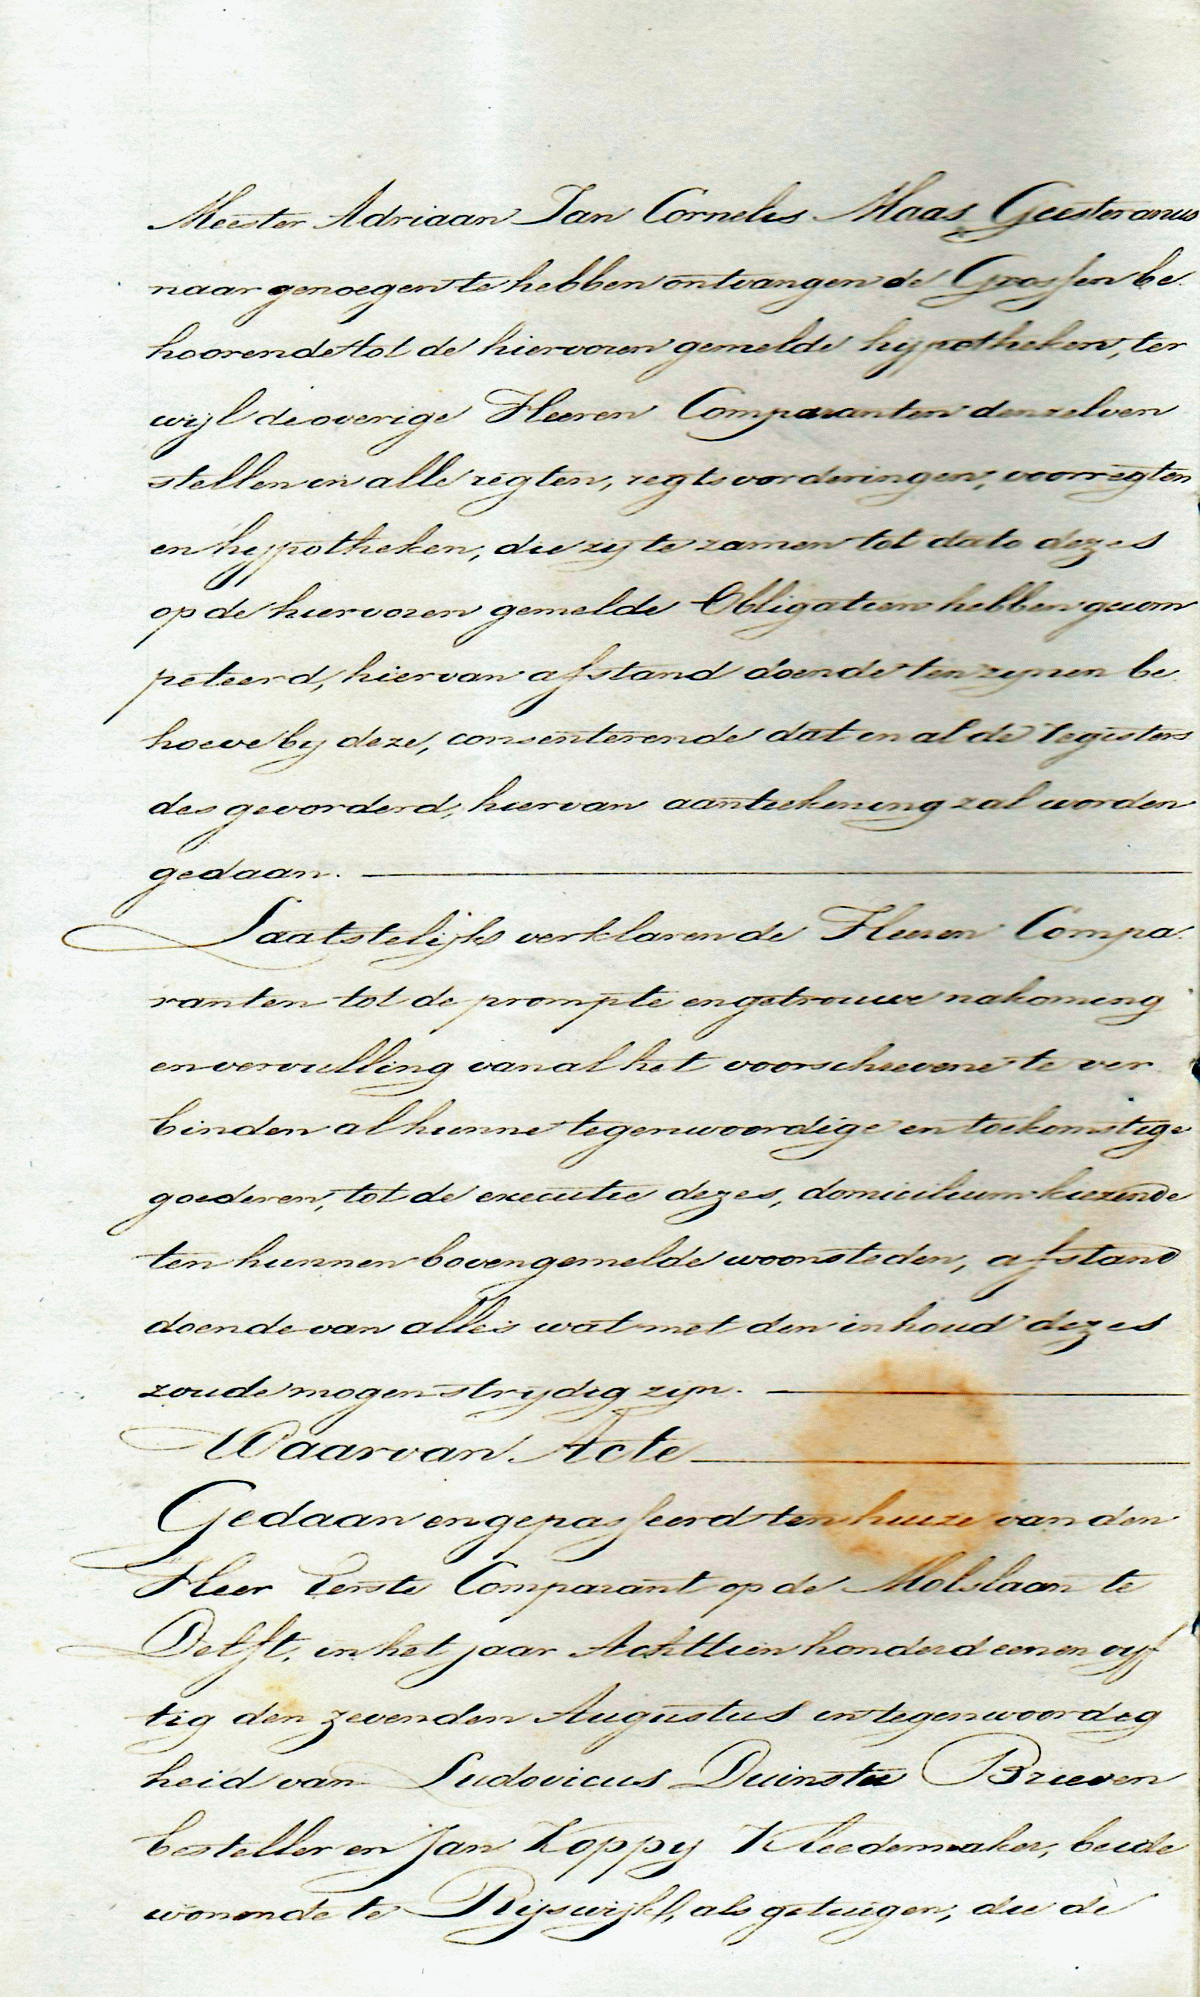 Meester Adriaan Jan Cornelis Maas Geesteranus
naar genoegen te hebben ontvangen de Grossen be
hoorende tot de hiervoren gemelde hypotheken, ter
wijl de overige Heeren Comparanten denzelven
stellen in alle regten, regtsvorderingen, voorregten
en hypotheken, die zij te zamen tot dato dezes
op de hiervoren gemelde Obligatien hebben gecom
peteerd, hiervan afstand doende ten zynen be
hoeve by deze, consenterende dat in al de registers
des gevorderd, hiervan aanteekening zal worden
gedaan.
Laatstelijk verklaren de Heeren Compa
ranten tot de prompte en getrouwe nakoming
en vervulling van al het voorschrevene te ver
binden al hunne tegenwoordige en toekomstige
goederen, tot de executie dezes, domicilium kiezende
ten hunnen bovengemelde woonsteden, afstand
doende van alles wat met den inhoud dezes
zoude mogen strydig zyn.
Waarvan Acte
Gedaan en gepasseerd ten huize van den
Heer Eerste Comparant op de Molslaan te
Delft, in het jaar Achttien honderd een en vyf
tig den zevenden Augustus in tegenwoordig
heid van Ludovicus Duinstee Brieven
besteller en Jan Koppy Kleedermaker, beide
wonende te Rijswijk, als getuigen, die de